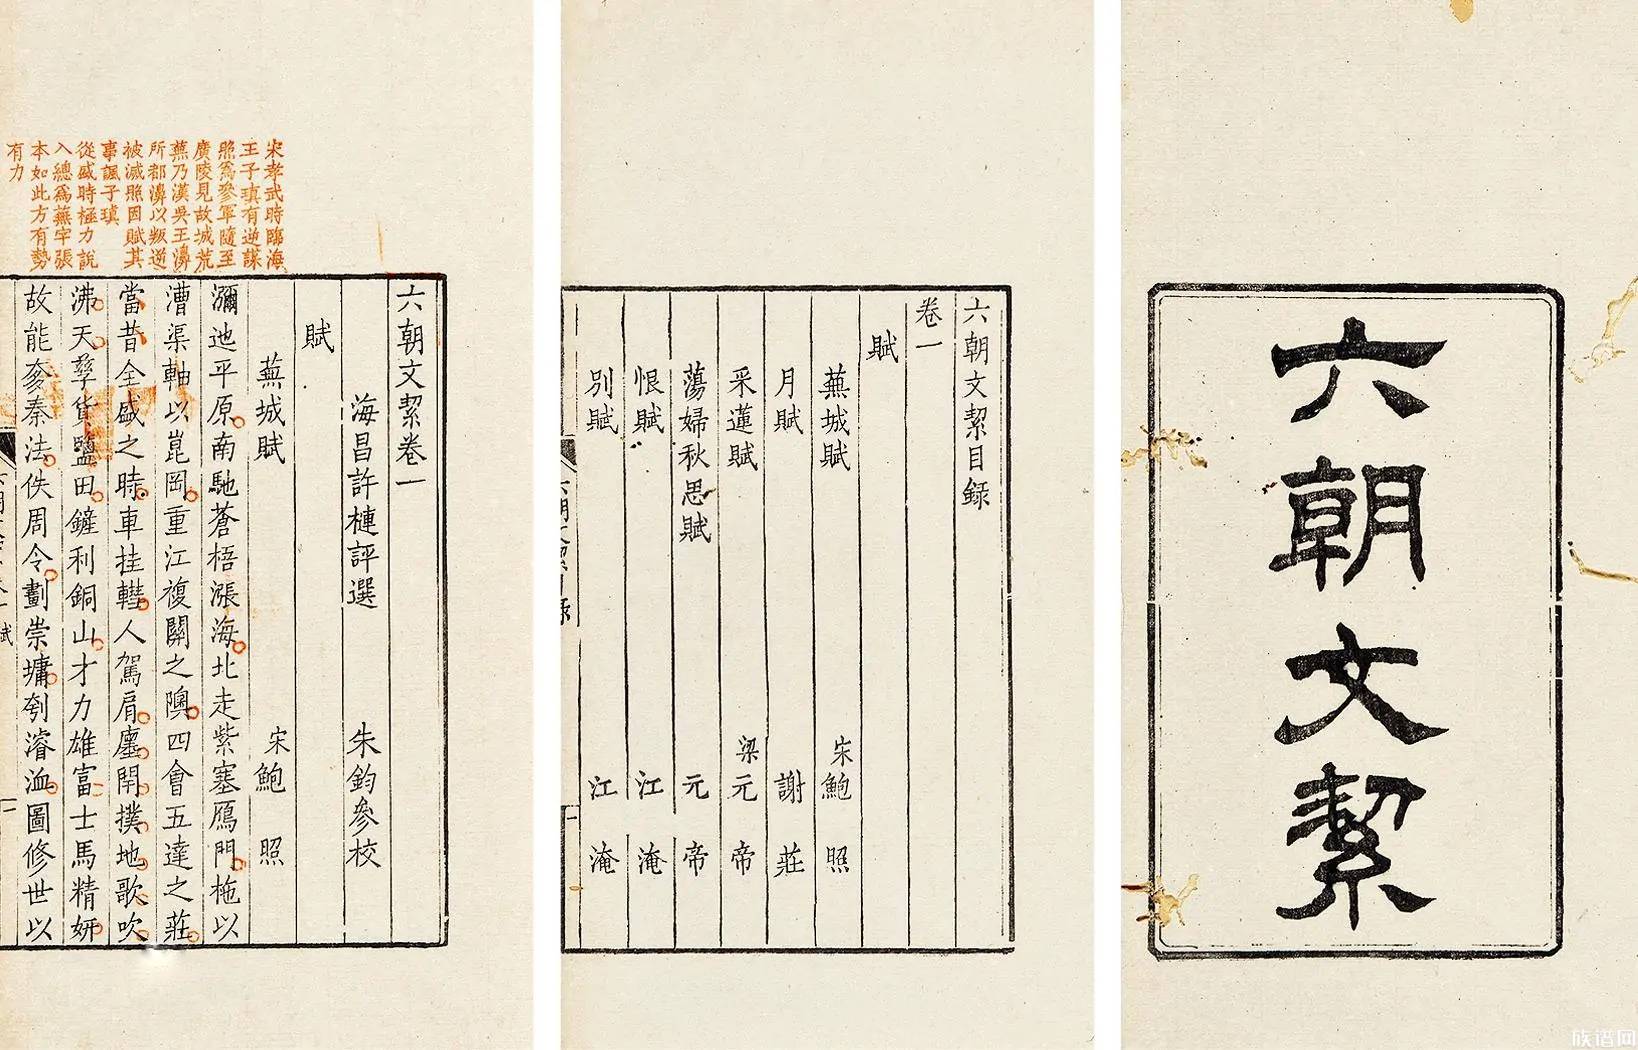 六朝文絜
六朝文絜目録
卷一
賦
蕪城賦 宋鮑照
月賦 謝莊
采蓮賦 梁元帝
蕩婦秋思賦 元帝
恨賦 江淹
別賦 江淹
六朝文絜卷一
海昌許槤評選 朱鈞參校
賦
蕪城賦 宋鮑照
瀰迆平原南馳蒼梧漲海北走紫塞鴈門柂以
漕渠軸以崑岡重江複關之隩四會五達之莊
當昔全盛之時車挂轊人駕肩廛閈撲地歌吹
沸天孳貨鹽田鏟利銅山才力雄富士馬精妍
故能奓秦法佚周令劃崇墉刳濬洫圖修世以
宋孝武時臨海
王子瑱有逆謀
照爲參軍隨至
廣陵見故城荒
蕪乃漢吳王濞
所都濞以叛逆
被滅照因賦其
事諷子瑱
從盛時極力說
入總爲蕪字張
本如此方有勢
有力
族谱网